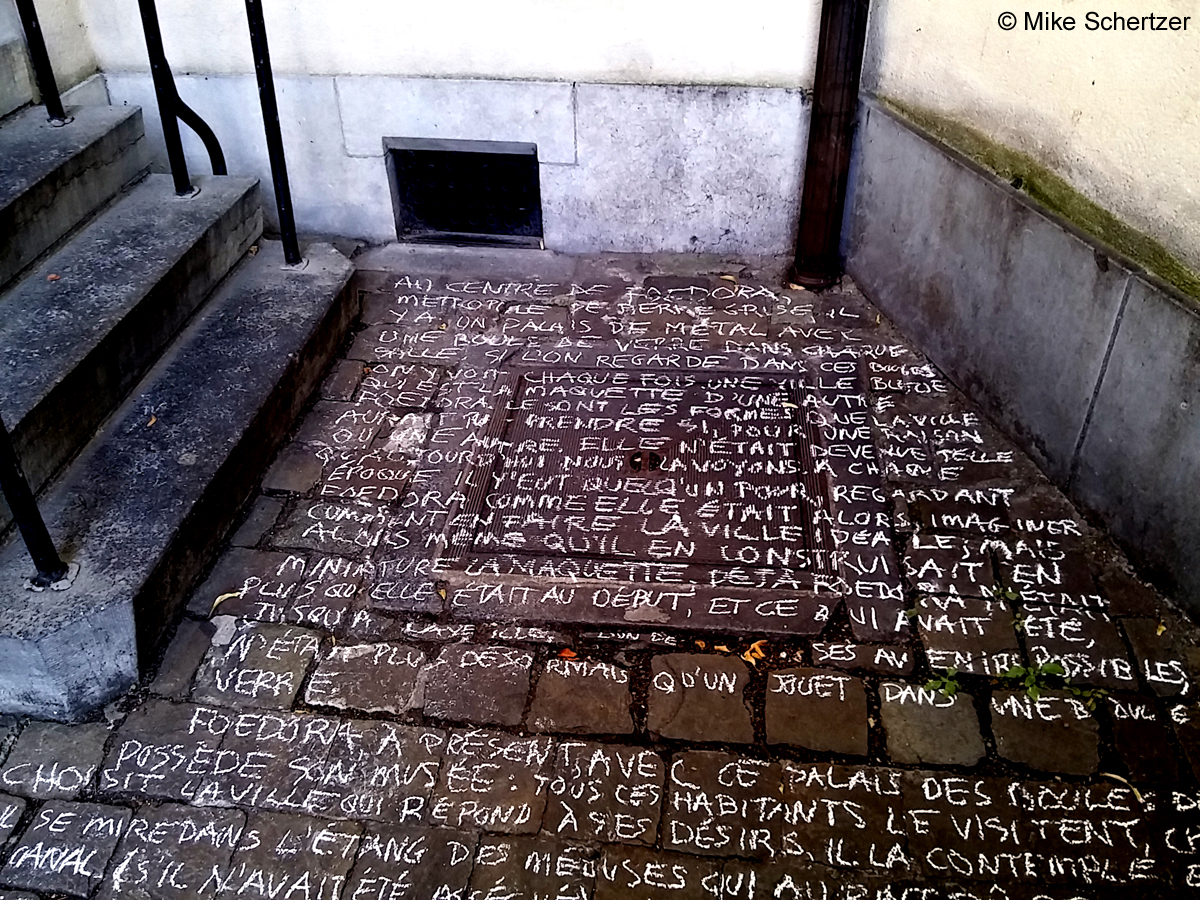 © Mike Schertzer
AU CENTRE DE FOEDORA,
METROPOLE DE PIERRE GRISE, IL
Y A UN PALAIS DE MÉTAL AVEC
UNE BOULE DE VERRE DANS CHAQUE
SALLE. SI L'ON REGARDE DANS CES BOULES
ON Y VOIT CHAQUE FOIS UNE VILLE BLEUE
QUI EST LA MAQUETTE D'UNE AUTRE
FOEDORA. CE SONT LES FORMES QUE LA VILLE
AURAIT PU PRENDRE SI, POUR UNE RAISON
OU UNE AUTRE, ELLE N'ÉTAIT DEVENUE TELLE
QU'AUJOURD'HUI NOUS LA VOYONS. A CHAQUE
ÉPOQUE IL Y EUT QUELQU'UN POUR, REGARDANT
FOEDORA COMME ELLE ÉTAIT ALORS, IMAGINER
COMMENT EN FAIRE LA VILLE IDÉALE, MAIS
ALORS MÊME QU'IL EN CONSTRUISAIT EN
MINIATURE LA MAQUETTE, DÉJÀ FOEDORA N'ÉTAIT
PLUS QU'ELLE ÉTAIT AU DÉBUT, ET CE QUI AVAIT ÉTÉ,
JUSQU'À SES AVENIR POSSIBLES,
N'ÉTAIT PLUS DÉSORMAIS QU'UN JOUET DANS UNE BOULE
VERRE.
FOEDORA, A PRÉSENT, AVEC CE PALAIS DES BOULE
POSSÈDE SON MUSÉE : TOUS CES HABITANTS LE VISITENT,
CHOISIT LA VILLE QUI RÉPOND À SES DÉSIRS, IL LA CONTEMPLE
IL SE MIRE DANS L'ÉTANG DES MÉDUSES QUI AU
CANAL (S'IL N'AVAIT ÉTÉ